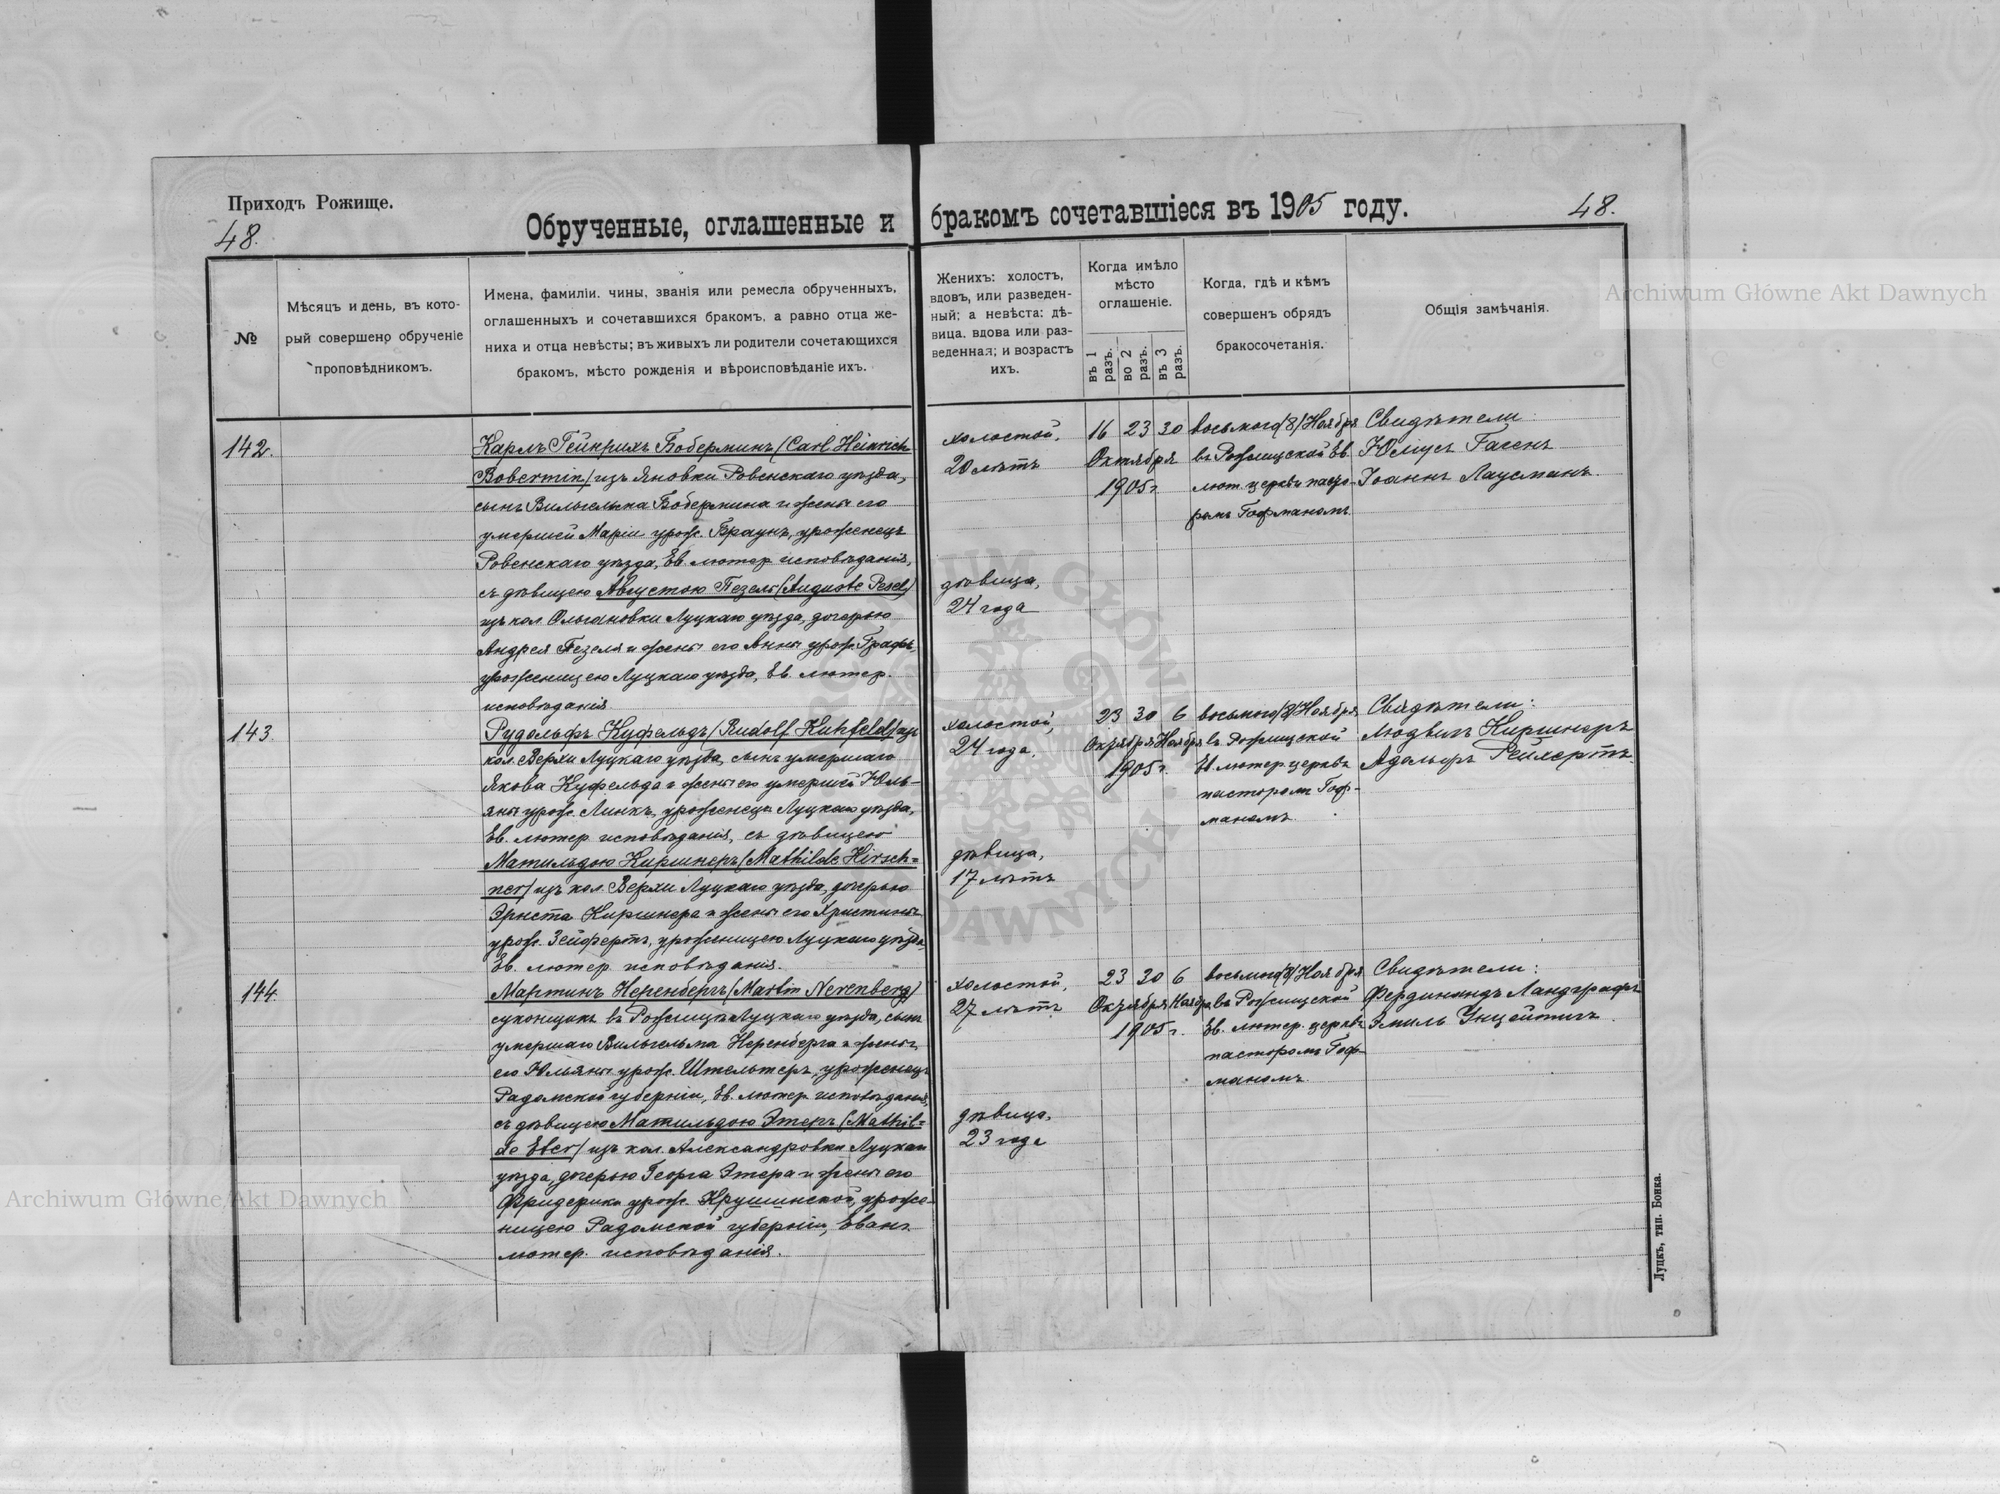 Приходъ Рожище.
48.
Обрученные, оглашенные и
бракомъ сочетавшіеся въ 1905 году.
48.
№
Мѣсяцъ и день, въ кото-
рый совершено обрученіе
проповѣдникомъ.
Имена, фамиліи. чины, званія или ремесла обрученныхъ,
оглашенныхъ и сочетавшихся бракомъ, а равно отца же-
ниха и отца невѣсты; въ живыхъ ли родители сочетающихся
бракомъ, мѣсто рожденія и вѣроисповѣданіе ихъ.
Женихъ: холостъ,
вдовъ, или разведен-
ный; а невѣста: дѣ-
вица. вдова или раз-
веденная; и возрастъ
ихъ.
Когда имѣло
мѣсто
оглашеніе.
въ 1 разъ.
во 2 разъ.
въ 3 разъ.
Когда, гдѣ и кѣмъ
совершенъ обрядъ
бракосочетанія.
Общія замѣчанія.
142.
Карлъ Гейнрихъ Боберминъ /Carl Heinrich
Bobermin/ изъ Яновки Ровенскаго уѣзда,
сынъ Вильгельма Бобермина и жены его
умершей Маріи урож. Браунъ, уроженецъ
Ровенскаго уѣзда, Ев. лютер. исповѣданія,
съ дѣвицею Августою Пезель /Auguste Pesel/
изъ кол. Ольгановки Луцкаго уѣзда, дочерью
Андрея Пезеля и жены его Анны урож. Графъ,
уроженицею Луцкаго уѣзда, Ев. лютер.
исповѣданія
холостой,
20 лѣтъ
дѣвица,
24 года
16 23 30
Октября
1905 г.
восьмого /8/ Ноября
въ Рожищской Ев.
лют. церкви пасто-
ромъ Гофманомъ.
Свидѣтели:
Юліусъ Гагенъ
Іоаннъ Лаусманъ.
143.
Рудольфъ Куфельдъ /Rudolf Kuhfeld/ изъ
кол. Верхи Луцкаго уѣзда, сынъ умершаго
Якова Куфельда и жены его умершей Юль-
яны урож. Линкъ, уроженецъ Луцкаго уѣзда,
Ев. лютер. исповѣданія, съ дѣвицею
Матильдою Киршнеръ /Mathilde Hirsch=
ner/ изъ кол. Верхи Луцкаго уѣзда, дочерью
Эрнста Киршнера и жены его Христины
урож. Зейфертъ, уроженицею Луцкаго уѣзда,
Ев. лютер. исповѣданія.
холостой,
24 года.
дѣвица,
17 лѣтъ
23 30 6
Октября Ноября
1905 г.
восьмого /8/ Ноября
въ Рожищской
Ев. лютер. церкви
пасторомъ Гоф-
маномъ.
Свидѣтели:
Людвигъ Киршнеръ
Адольфъ Рейхертъ
144.
Мартинъ Неренбергъ /Martin Nerenberg/
суконщикъ въ Рожищѣ Луцкаго уѣзда, сынъ
умершаго Вильгельма Неренберга и жены
его Юльяны урож. Штельтеръ, уроженецъ
Радомской губерніи, Ев. лютер. исповѣданія,
съ дѣвицею Матильдою Этеръ /Mathil=
de Eter/ изъ кол. Александровки Луцкаго
уѣзда, дочерью Георга Этера и жены его
Фридерики урож. Крушинской, уроже-
ницею Радомской губерніи, Еванг.
лютер. исповѣданія.
холостой,
27 лѣтъ
дѣвица,
23 года
23 30 6
Октября Ноября
1905 г.
восьмого /8/ Ноября
въ Рожищской
Ев. лютер. церкви
пасторомъ Гоф-
маномъ.
Свидѣтели:
Фердинандъ Ландграфъ
Эмиль
Луцкъ, тип. Бонка.
Archiwum Główne Akt Dawnych
Archiwum Główne Akt Dawnych